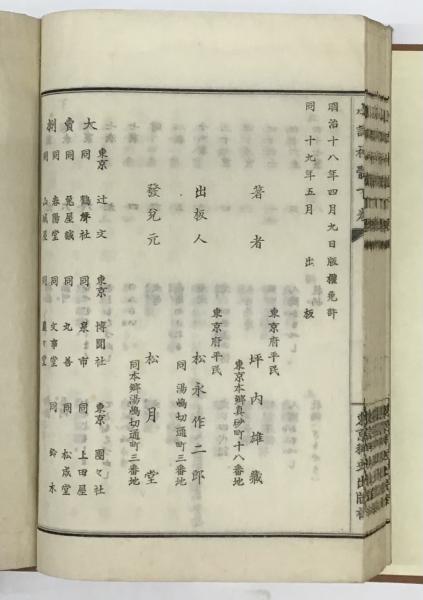 明治十八年四月九日版權免許
同 十九年五月 出版
著者
東京府平民
坪內雄藏
東京本郷真砂町十八番地
出板人
東京府平民
松永作二郎
同 湯嶋切通町三番地
發兌元
松月堂
同本郷湯嶋切通町三番地
大賣捌
東京 辻文
東京 博聞社
東京 團々社
同 鶴聲社
同
同 上田屋
同 兎屋誠
同 丸善
同 松成堂
同 春陽堂
同 文事堂
同 鈴木
同 山城屋
同